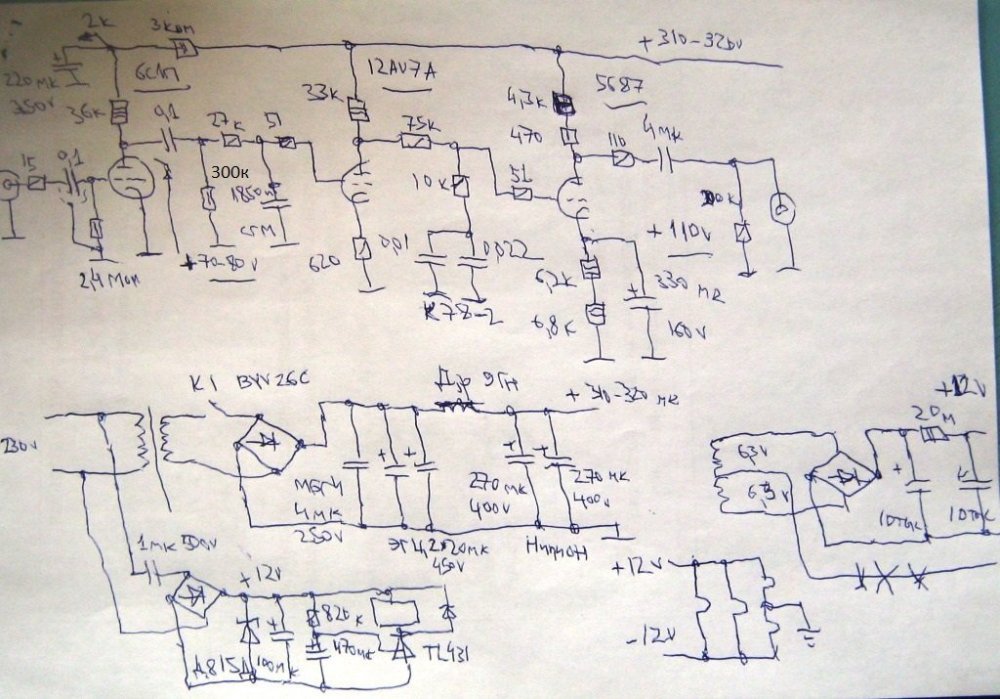 2к
3ком
+310-320v
220мк
350v
6с1п
36к
0,1
27к
51
33к
12AU7A
75к
4,3к
5687
470
110
4мк
15
0,1
300к
10к
51
+110v
620
0,01
0,022
6,2к
330мк
2,4Мом
+70-80v
К78-2
6,8к
160v
К1
BYV26C
Др 9Гн
+310-320
230v
МБГЧ
4мк
250v
270мк
400v
270мк
400v
450v
+12v
6,3v
6,3v
20м
1мк 500v
+12v
820к
Д815Д
100мк
470мк
TL431
+12v
-12v